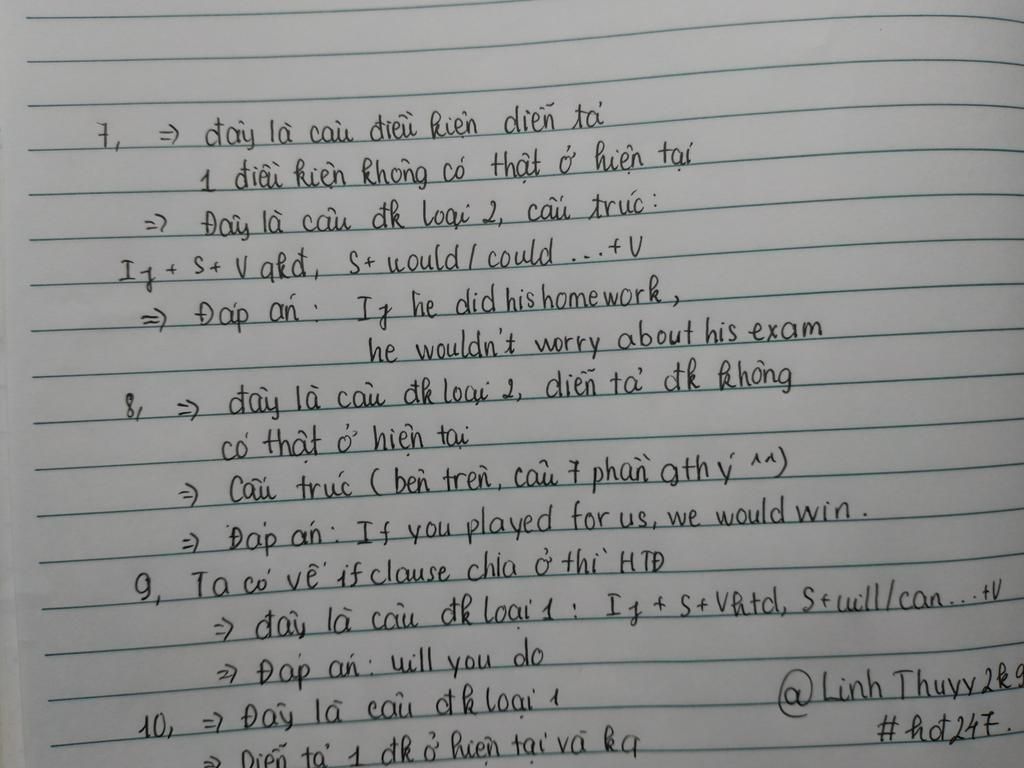 7, => đây là câu điều kiện diễn tả
1 điều kiện không có thật ở hiện tại
=> Đây là câu đk loại 2, cấu trúc:
If + S + V qkđ, S + would / could ... + V
=> Đáp án: If he did his homework,
he wouldn't worry about his exam
8, => đây là câu đk loại 2, diễn tả đk không
có thật ở hiện tại
=> Cấu trúc (bên trên, câu 7 phần gth ý ^^)
=> Đáp án: If you played for us, we would win.
9, Ta có vế if clause chia ở thì HTĐ
=> đây là câu đk loại 1: If + S + Vhtd, S + will/can ... + V
=> Đáp án: will you do
10, => Đây là câu đk loại 1
@Linh Thuyy2k9
#hot247.
=> Diễn tả 1 đk ở hiện tại và kq